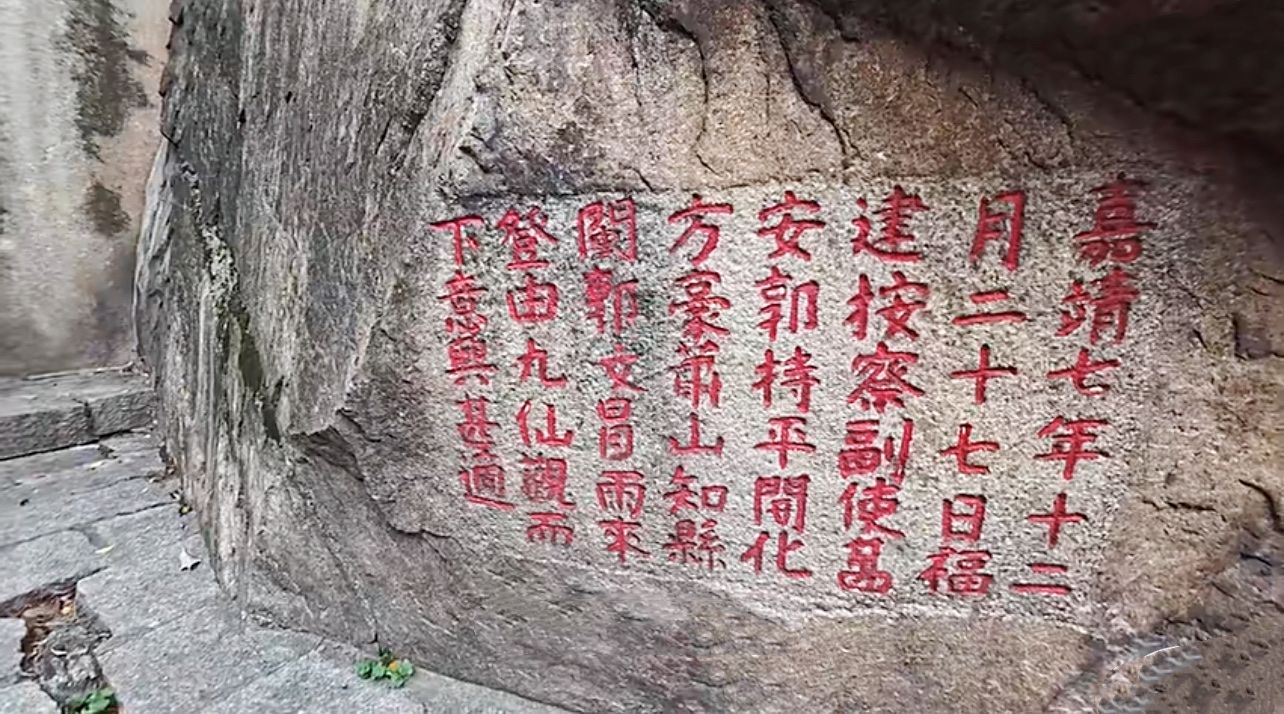 嘉靖七年十二
月二十七日福
建按察副使萬
安郭持平開化
方豪蕭山知縣
閩郭文冒雨來
登由九仙觀而
下意興甚適